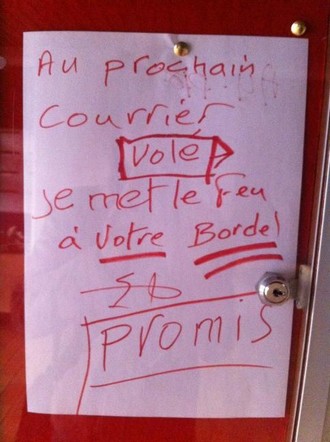 Au prochain
courrier
volé
Je met le feu
à votre Bordel
promis